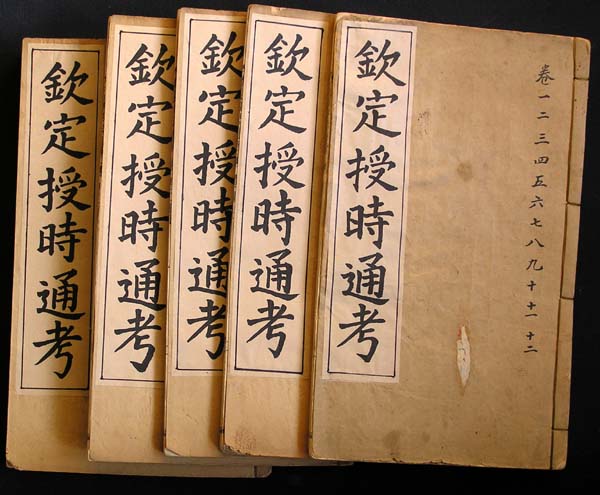 卷一二三四五六七八九十十一十二
欽定授時通考
欽定授時通考
欽定授時通考
欽定授時通考
欽定授時通考